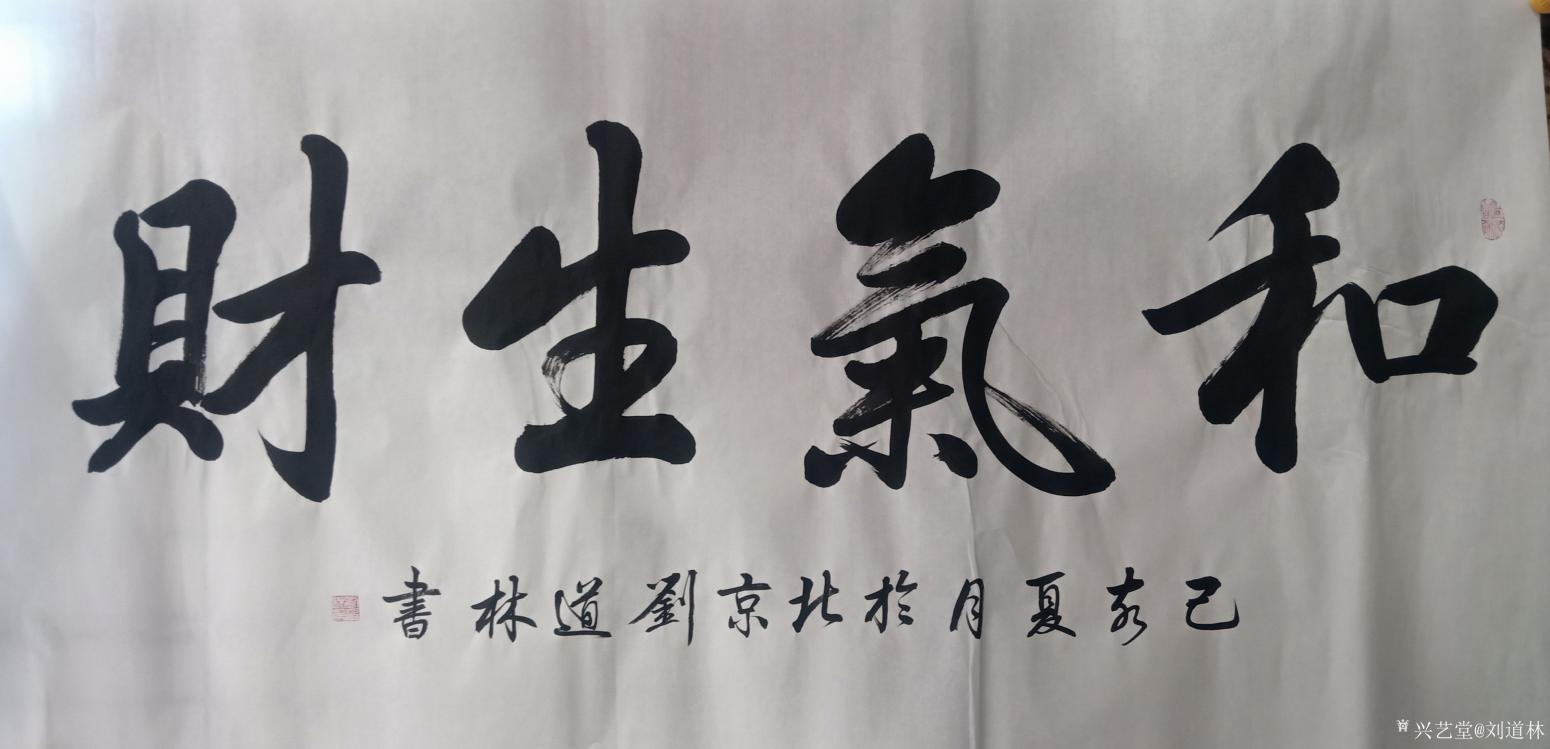 和氣生財
己亥夏月於北京劉道林書
兴艺堂@刘道林